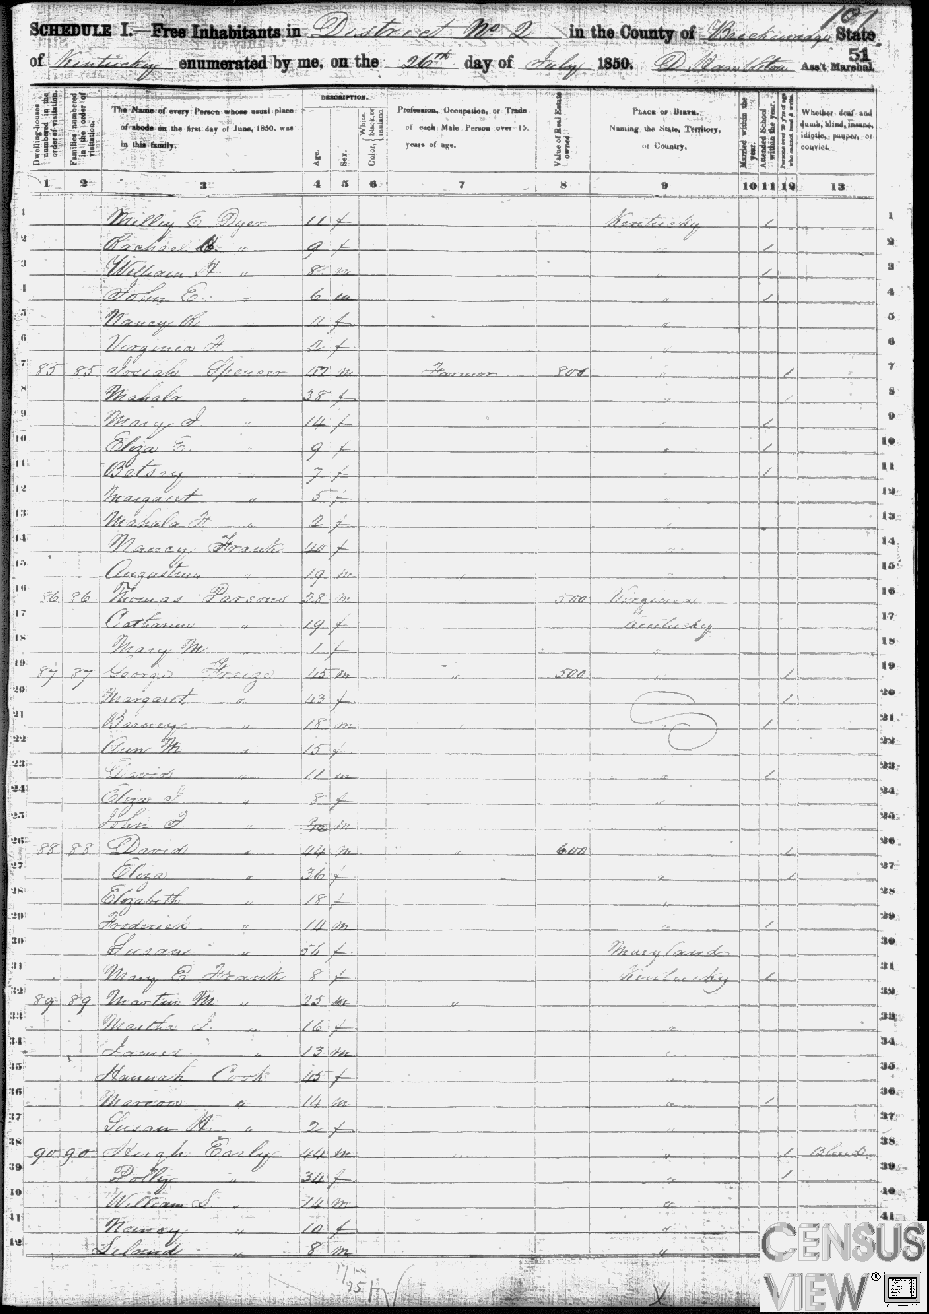 101
SCHEDULE I.—Free Inhabitants in District No 2 in the County of Breckinridge State
51
of Kentucky enumerated by me, on the 26th day of July 1850. Ass't Marshal.
DESCRIPTION.
Dwelling-houses numbered in the order of visitation.
Families numbered in the order of visitation.
The Name of every Person whose usual place of abode on the first day of June, 1850, was in this family.
Age.
Sex.
Color, White, black, or mulatto.
Profession, Occupation, or Trade of each Male Person over 15 years of age.
Value of Real Estate owned
PLACE OF BIRTH. Naming the State, Territory, or Country.
Married within the year.
Attended School within the year.
Persons over 20 y'rs of age who cannot read & write.
Whether deaf and dumb, blind, insane, idiotic, pauper, or convict.
1 2 3 4 5 6 7 8 9 10 11 12 13
1 E. Dyer 11 f Kentucky 1 1
2 Rachael " 9 f 1 2
3 William H " 8 m 1 3
4 John E. " 6 m 1 4
5 Nancy R. f " 5
6 Virginia F 2 f " 6
7 85 85 Josiah Spencer m Farmer 800 " 1 7
8 Mahala " 38 f " 1 8
9 Mary J " 14 f " 1 9
10 Eliza E. " 9 f " 1 10
11 Betsry " 7 f " 1 11
12 Margaret " 5 f " 12
13 Mahala F " 2 f " 13
14 Nancy Frank 40 f " 14
15 Augustus " 19 m " " 15
16 86 86 Thomas Parsons 28 m 500 Virginia 16
17 Catharine " 19 f Kentucky 17
18 Mary M " 1 f " 18
19 87 87 George 45 m " 500 " 1 19
20 Margaret " 43 f 1 20
21 " 18 m " " 1 21
22 Ann M " 15 f 22
23 David " 11 m " 1 23
24 Eliza J " 8 f " 24
25 John m " 25
26 88 88 David " 44 m " 600 1 26
27 Eliza " 36 f " 1 27
28 Elizabeth " 18 f " 28
29 Frederick " 14 m " 1 29
30 Susan " f Maryland 30
31 Mary E Frank 8 f Kentucky 1 31
32 89 89 Martin M " 25 m " " 32
33 Martha J. " 16 f " 33
34 James " 13 m " 34
35 Hannah Cook 45 f " 35
36 Marion " 14 m " 1 36
37 Susan " 2 f " 37
38 90 90 Hugh Early 44 m " 1 Blind 38
39 Polly " 34 f " 1 39
40 William S. " 14 m " 40
41 Nancy " 10 f " 41
42 Leland " 8 m "
CENSUS
VIEW®